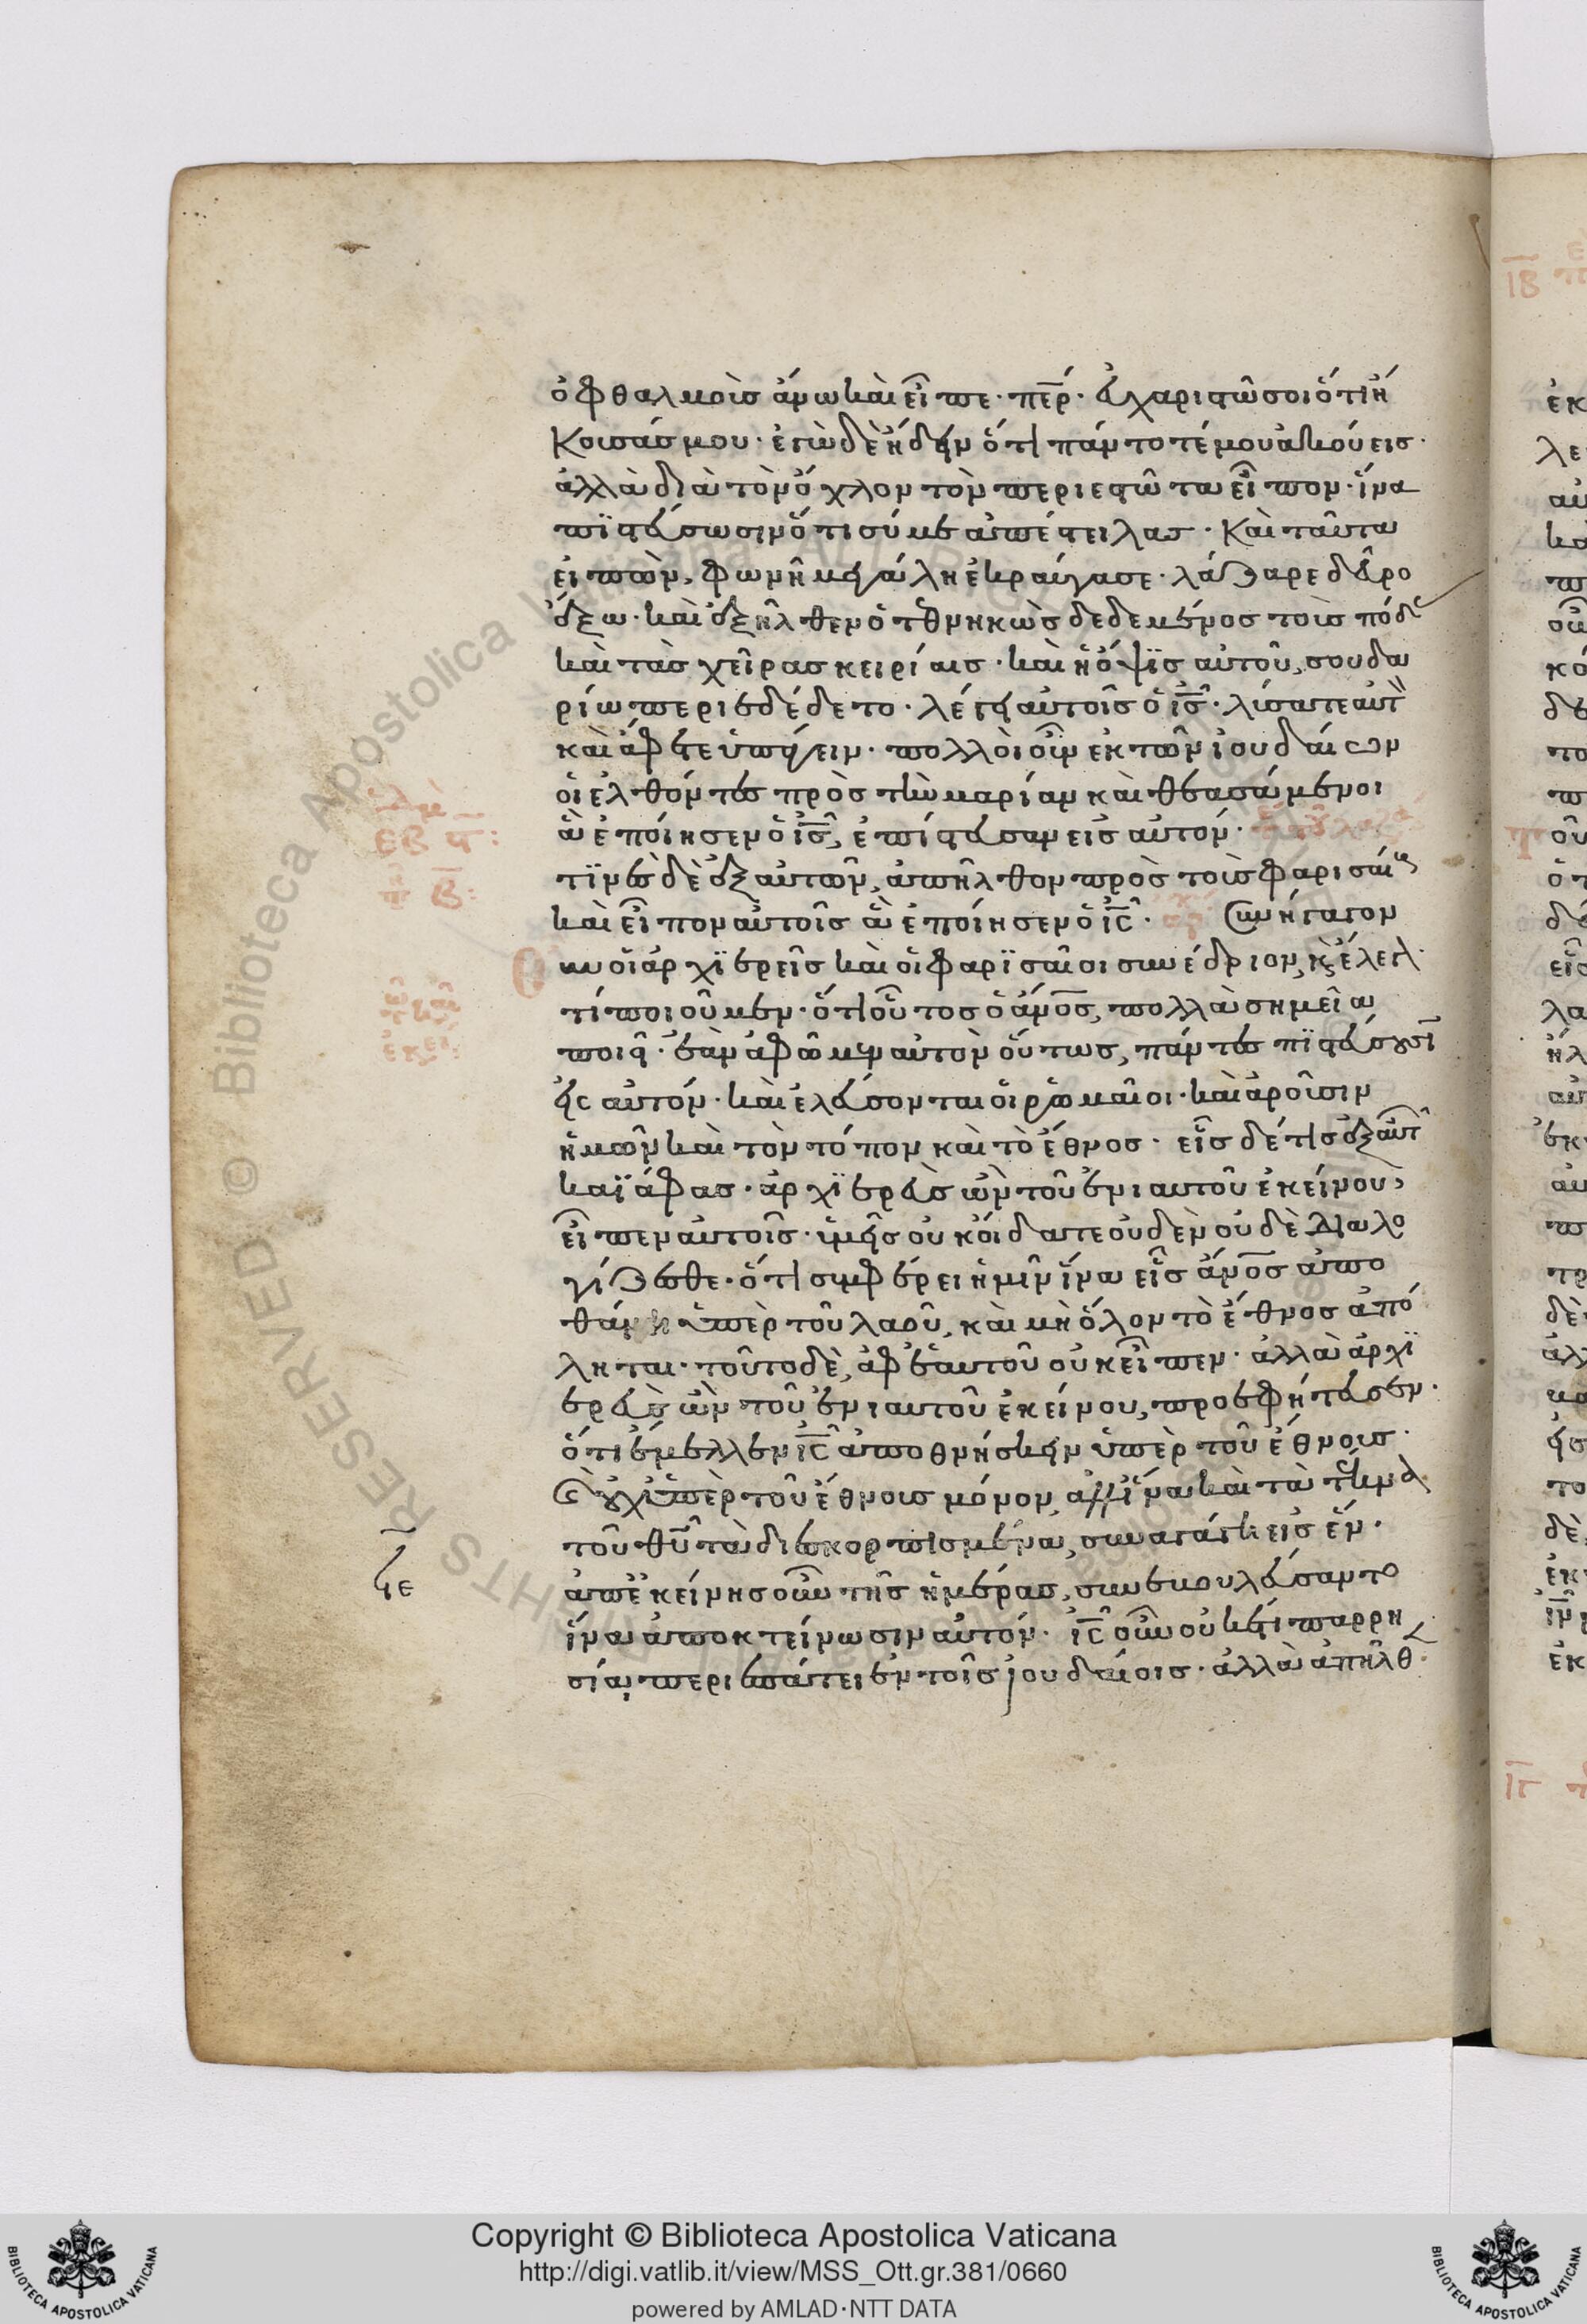 ὀφθαλμοὺς ἄνω καὶ εἶπε· πε̅ρ· εὐχαριστῶ σοι ὅτι ἤ
κουσάς μου· ἐγὼ δὲ ἤδειν ὅτι πάντοτέ μου ἀκούεις·
ἀλλὰ διὰ τὸν ὄχλον τὸν περιεστῶτα εἶπον· ἵνα
πϊστεύσωσιν ὅτι σύ με ἀπέστειλας· Καὶ ταῦτα
εἰπὼν, φωνῆ μεγάλη ἐκραύγασε· λάζαρε δεῦρο
ἔξω· καὶ ἐξῆλθεν ὁ τεθνηκὼς δεδεμένος τοὺς πόδ
καὶ τὰς χεῖρας κειρίαις· καὶ ἡ ὄψϊς αὐτοῦ, σουδα
ρίω περιεδέδετο· λέγει αὐτοῖς ὁ ι̅ς· λύσατε αὐτ
καὶ ἄφετε ὑπάγειν· πολλοὶ οὖν ἐκ τῶν ἰουδαίων
οἱ ἐλθόντες πρὸς τὴν μαρίαν καὶ θεασάμενοι
ἃ ἐποίησεν ὁ ι̅ς, ἐπίστευσαν εἰς αὐτόν·
τϊνὲς δὲ ἐξ αὐτῶν, ἀπῆλθον πρὸς τοὺς φαρισαί
καὶ εἶπον αὐτοῖς ἃ ἐποίησεν ὁ ι̅ς· Συνήγαγον
οὖν οἱ ἀρχϊερεῖς καὶ οἱ φαρϊσαῖοι συνέδριον, κ̀ ἔλεγ·
τί ποιοῦμεν· ὅτι οὗτος ὁ ἄνο̅ς, πολλὰ σημεῖα
ποιεῖ· ἐὰν ἀφῶμεν αὐτὸν οὕτως, πάντες πϊστεύσουσι
εἰς αὐτόν· καὶ ἐλεύσονται οἱ ῥωμαῖοι· καὶ ἀροῦσιν
ἡμῶν καὶ τὸν τόπον καὶ τὸ ἔθνος· εἷς δέ τις ἐξ αὐτ
καϊάφας· ἀρχϊερεὺς ὢν τοῦ ἐνιαυτοῦ ἐκείνου,
εἶπεν αὐτοῖς· ὑμεῖς οὐκ οἴδατε οὐδὲν οὐδὲ διαλο
γίζεσθε· ὅτι συμφέρει ἡμῖν ἵνα εἷς ἄνο̅ς ἀπο
θάνη ὑπὲρ τοῦ λαοῦ, καὶ μὴ ὅλον τὸ ἔθνος ἀπό
ληται· τοῦτο δὲ, ἀφ' ἑαυτοῦ οὐκ εἶπεν· ἀλλὰ ἀρχϊ
ερεὺς ὢν τοῦ ἐνιαυτοῦ ἐκείνου, προεφήτευσεν·
ὅτι ἔμελλεν ι̅ς ἀποθνήσκειν ὑπὲρ τοῦ ἔθνους·
καὶ οὐχ ὑπὲρ τοῦ ἔθνους μόνον, ἀλλ' ἵνα καὶ τὰ τέκνα
τοῦ θυ̅ τὰ διεσκορπισμένα, συναγάγη εἰς ἕν·
ϟε
ἀπ' ἐκείνης οὖν τῆς ἡμέρας, συνεβουλεύσαντο
ἵνα ἀποκτείνωσιν αὐτόν· ι̅ς οὖν οὐκέτι παρρη
σία, περιεπάτει ἐν τοῖς ἰουδαίοις· ἀλλὰ ἀπῆλθ
Copyright © Biblioteca Apostolica Vaticana
http://digi.vatlib.it/view/MSS_Ott.gr.381/0660
powered by AMLAD·NTT DATA